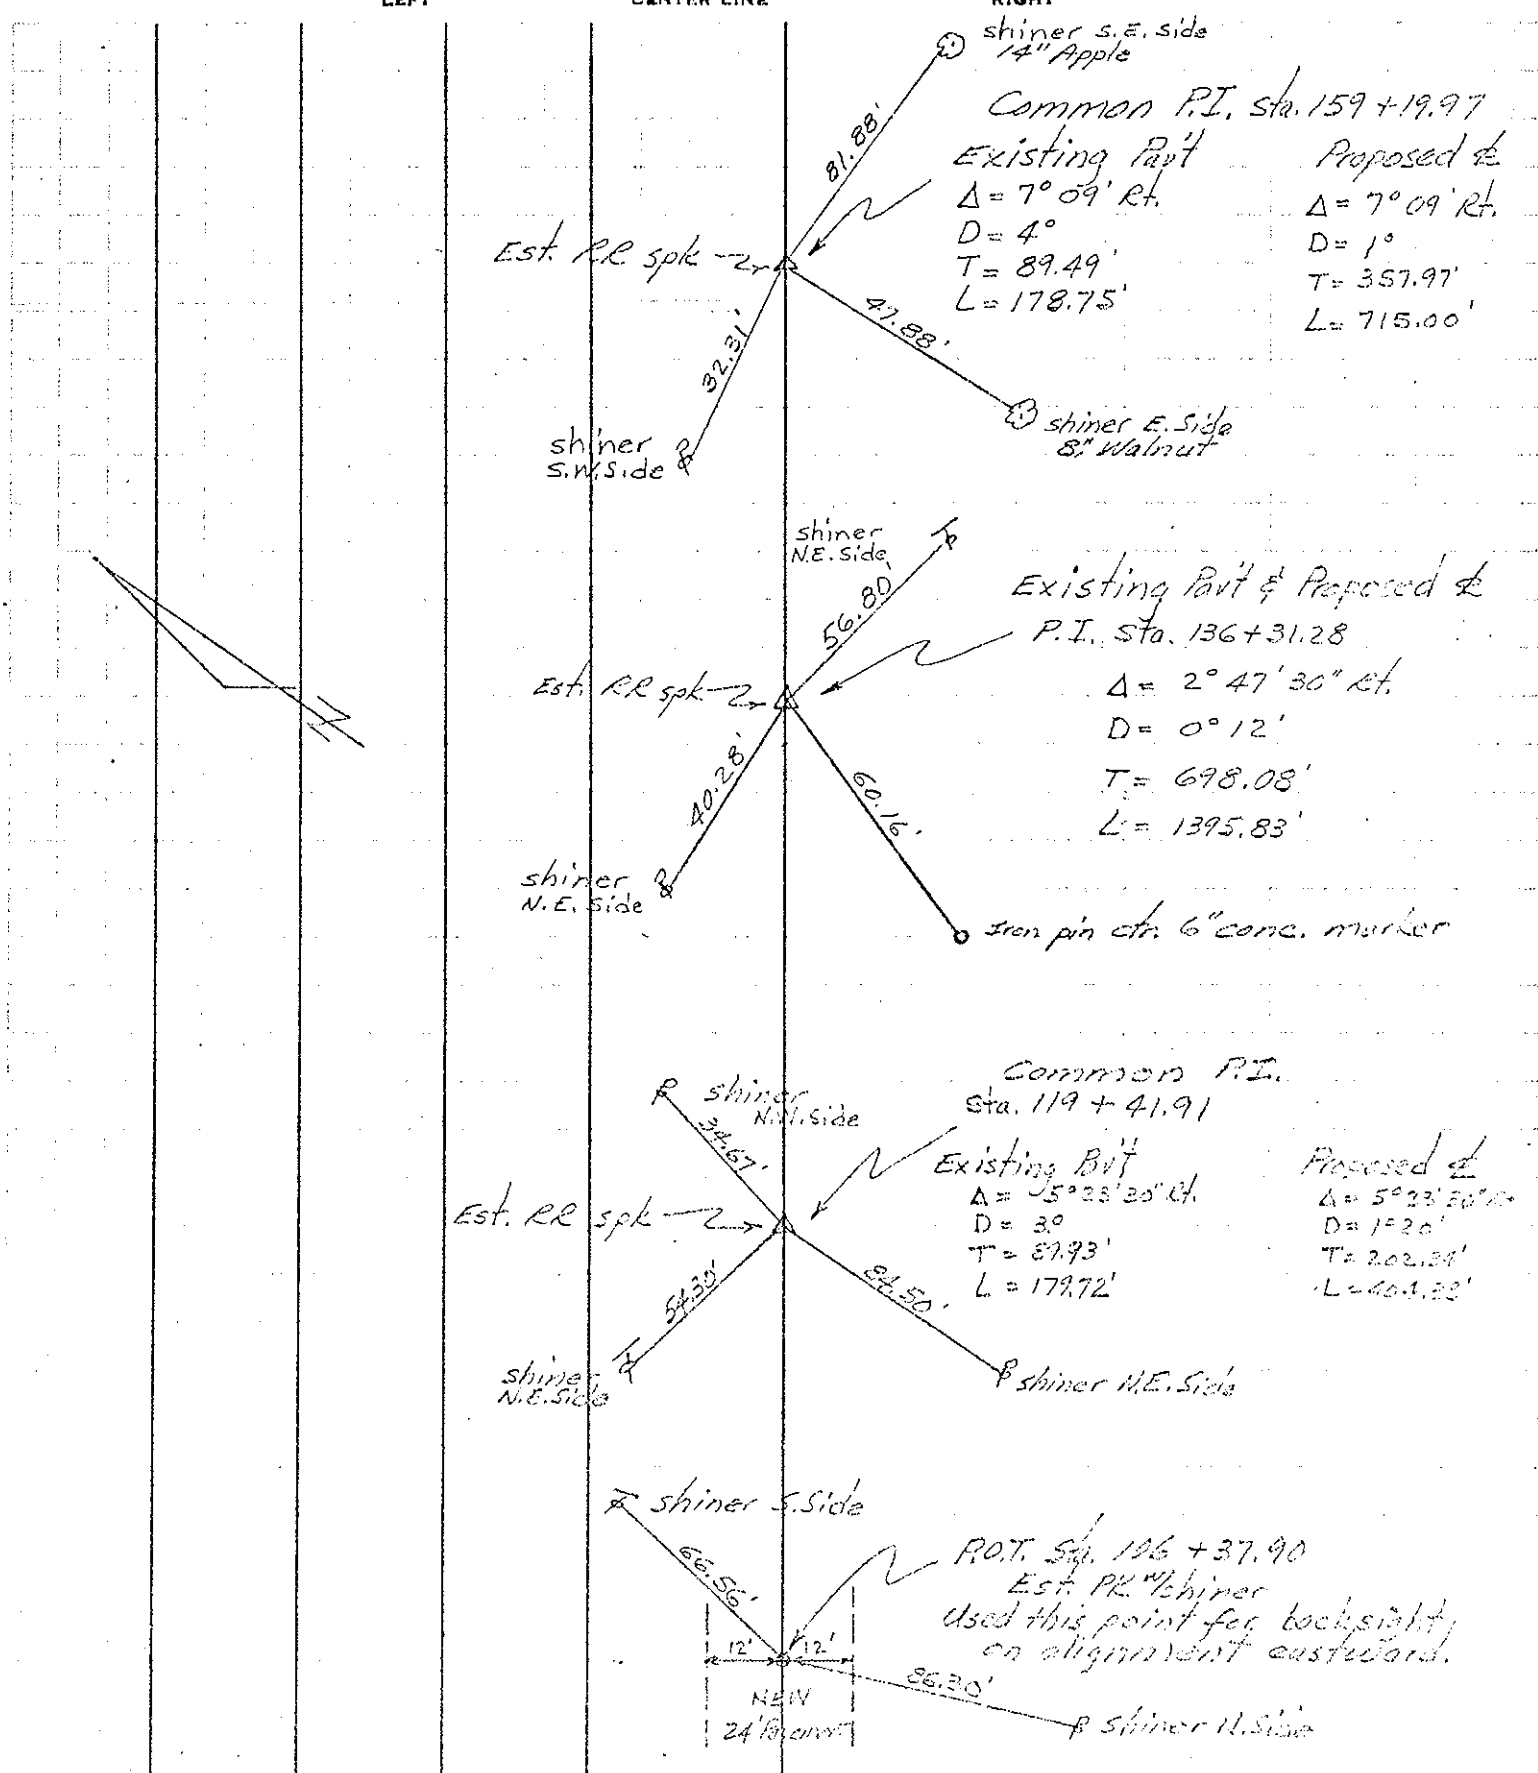 LEFT
CENTER LINE
RIGHT
shiner S.E. Side
14" Apple
81.88'
Common P.I. Sta. 159 + 19.97
Existing Pav't
Δ = 7° 09' Rt.
D = 4°
T = 89.49'
L = 178.75'
Proposed ℄
Δ = 7° 09' Rt.
D = 1°
T = 357.97'
L = 715.00'
Est. RR spk
32.31'
47.88'
shiner
S.W. Side
shiner E. Side
8" Walnut
shiner
N.E. Side
56.80'
Existing Pav't & Proposed ℄
P.I. Sta. 136 + 31.28
Δ = 2° 47' 30" Rt.
D = 0° 12'
T = 698.08'
L = 1395.83'
Est. RR spk
40.28'
60.16'
shiner
N.E. Side
Iron pin ctr. 6" conc. marker
shiner
N.W. Side
34.67'
Common P.I.
Sta. 119 + 41.91
Existing Pav't
Δ = 5° 23' 30" Rt.
D = 3°
T = 89.93'
L = 179.72'
Proposed ℄
Δ = 5° 23' 30" Rt
D = 1° 20'
T = 202.34'
L = 404.38'
Est. RR spk
54.30'
84.50'
shiner
N.E. Side
shiner N.E. Side
shiner S. Side
66.56'
P.O.T. Sta. 106 + 37.90
Est. PK w/shiner
Used this point for backsight
on alignment eastward.
12' 12'
86.30'
NEW
24'
shiner N. Side